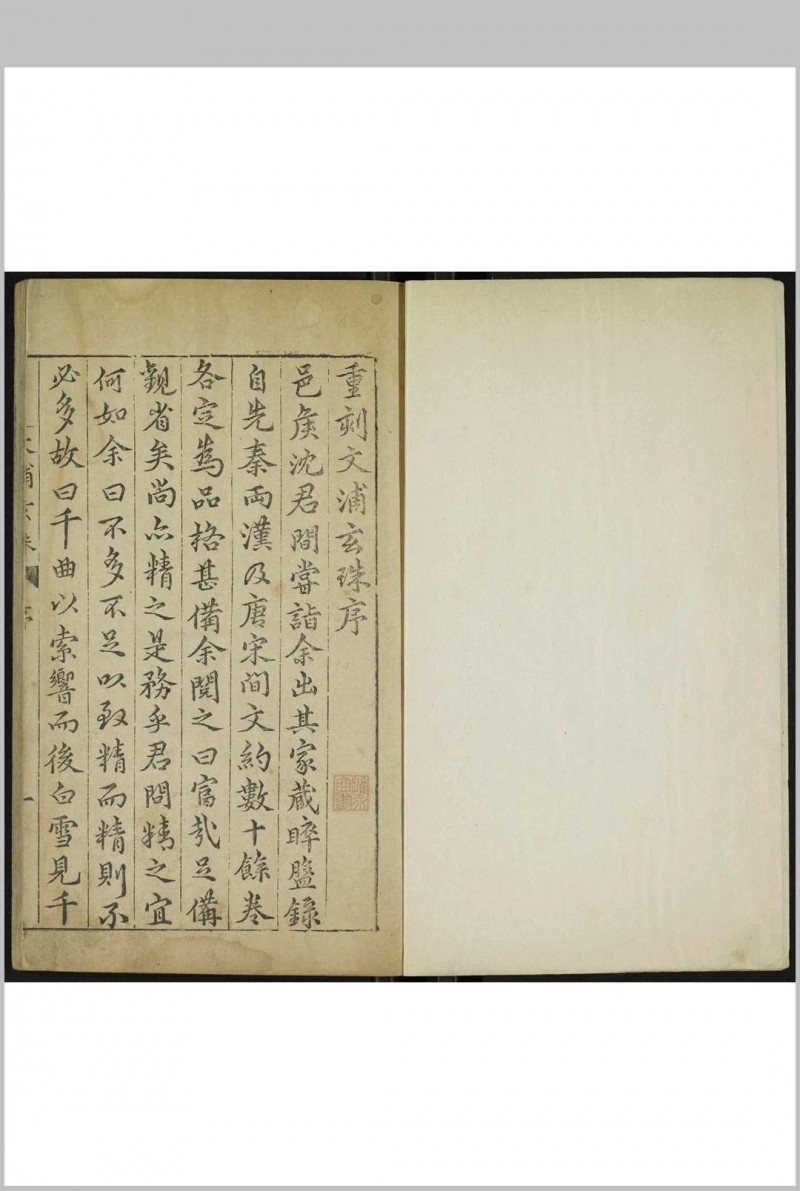 重刻文浦玄珠序
邑矦沈君間嘗詣余出其家蔵睟盬錄
自先秦兩漢及唐宋間文約數十餘卷
各定為品格甚備余閱之曰富哉足備
觀省矣尚亦精之是務乎君問精之宜
何如余曰不多不足以致精而精則不
必多故曰千曲以索響而後白雪見千
文浦玄珠 序 一